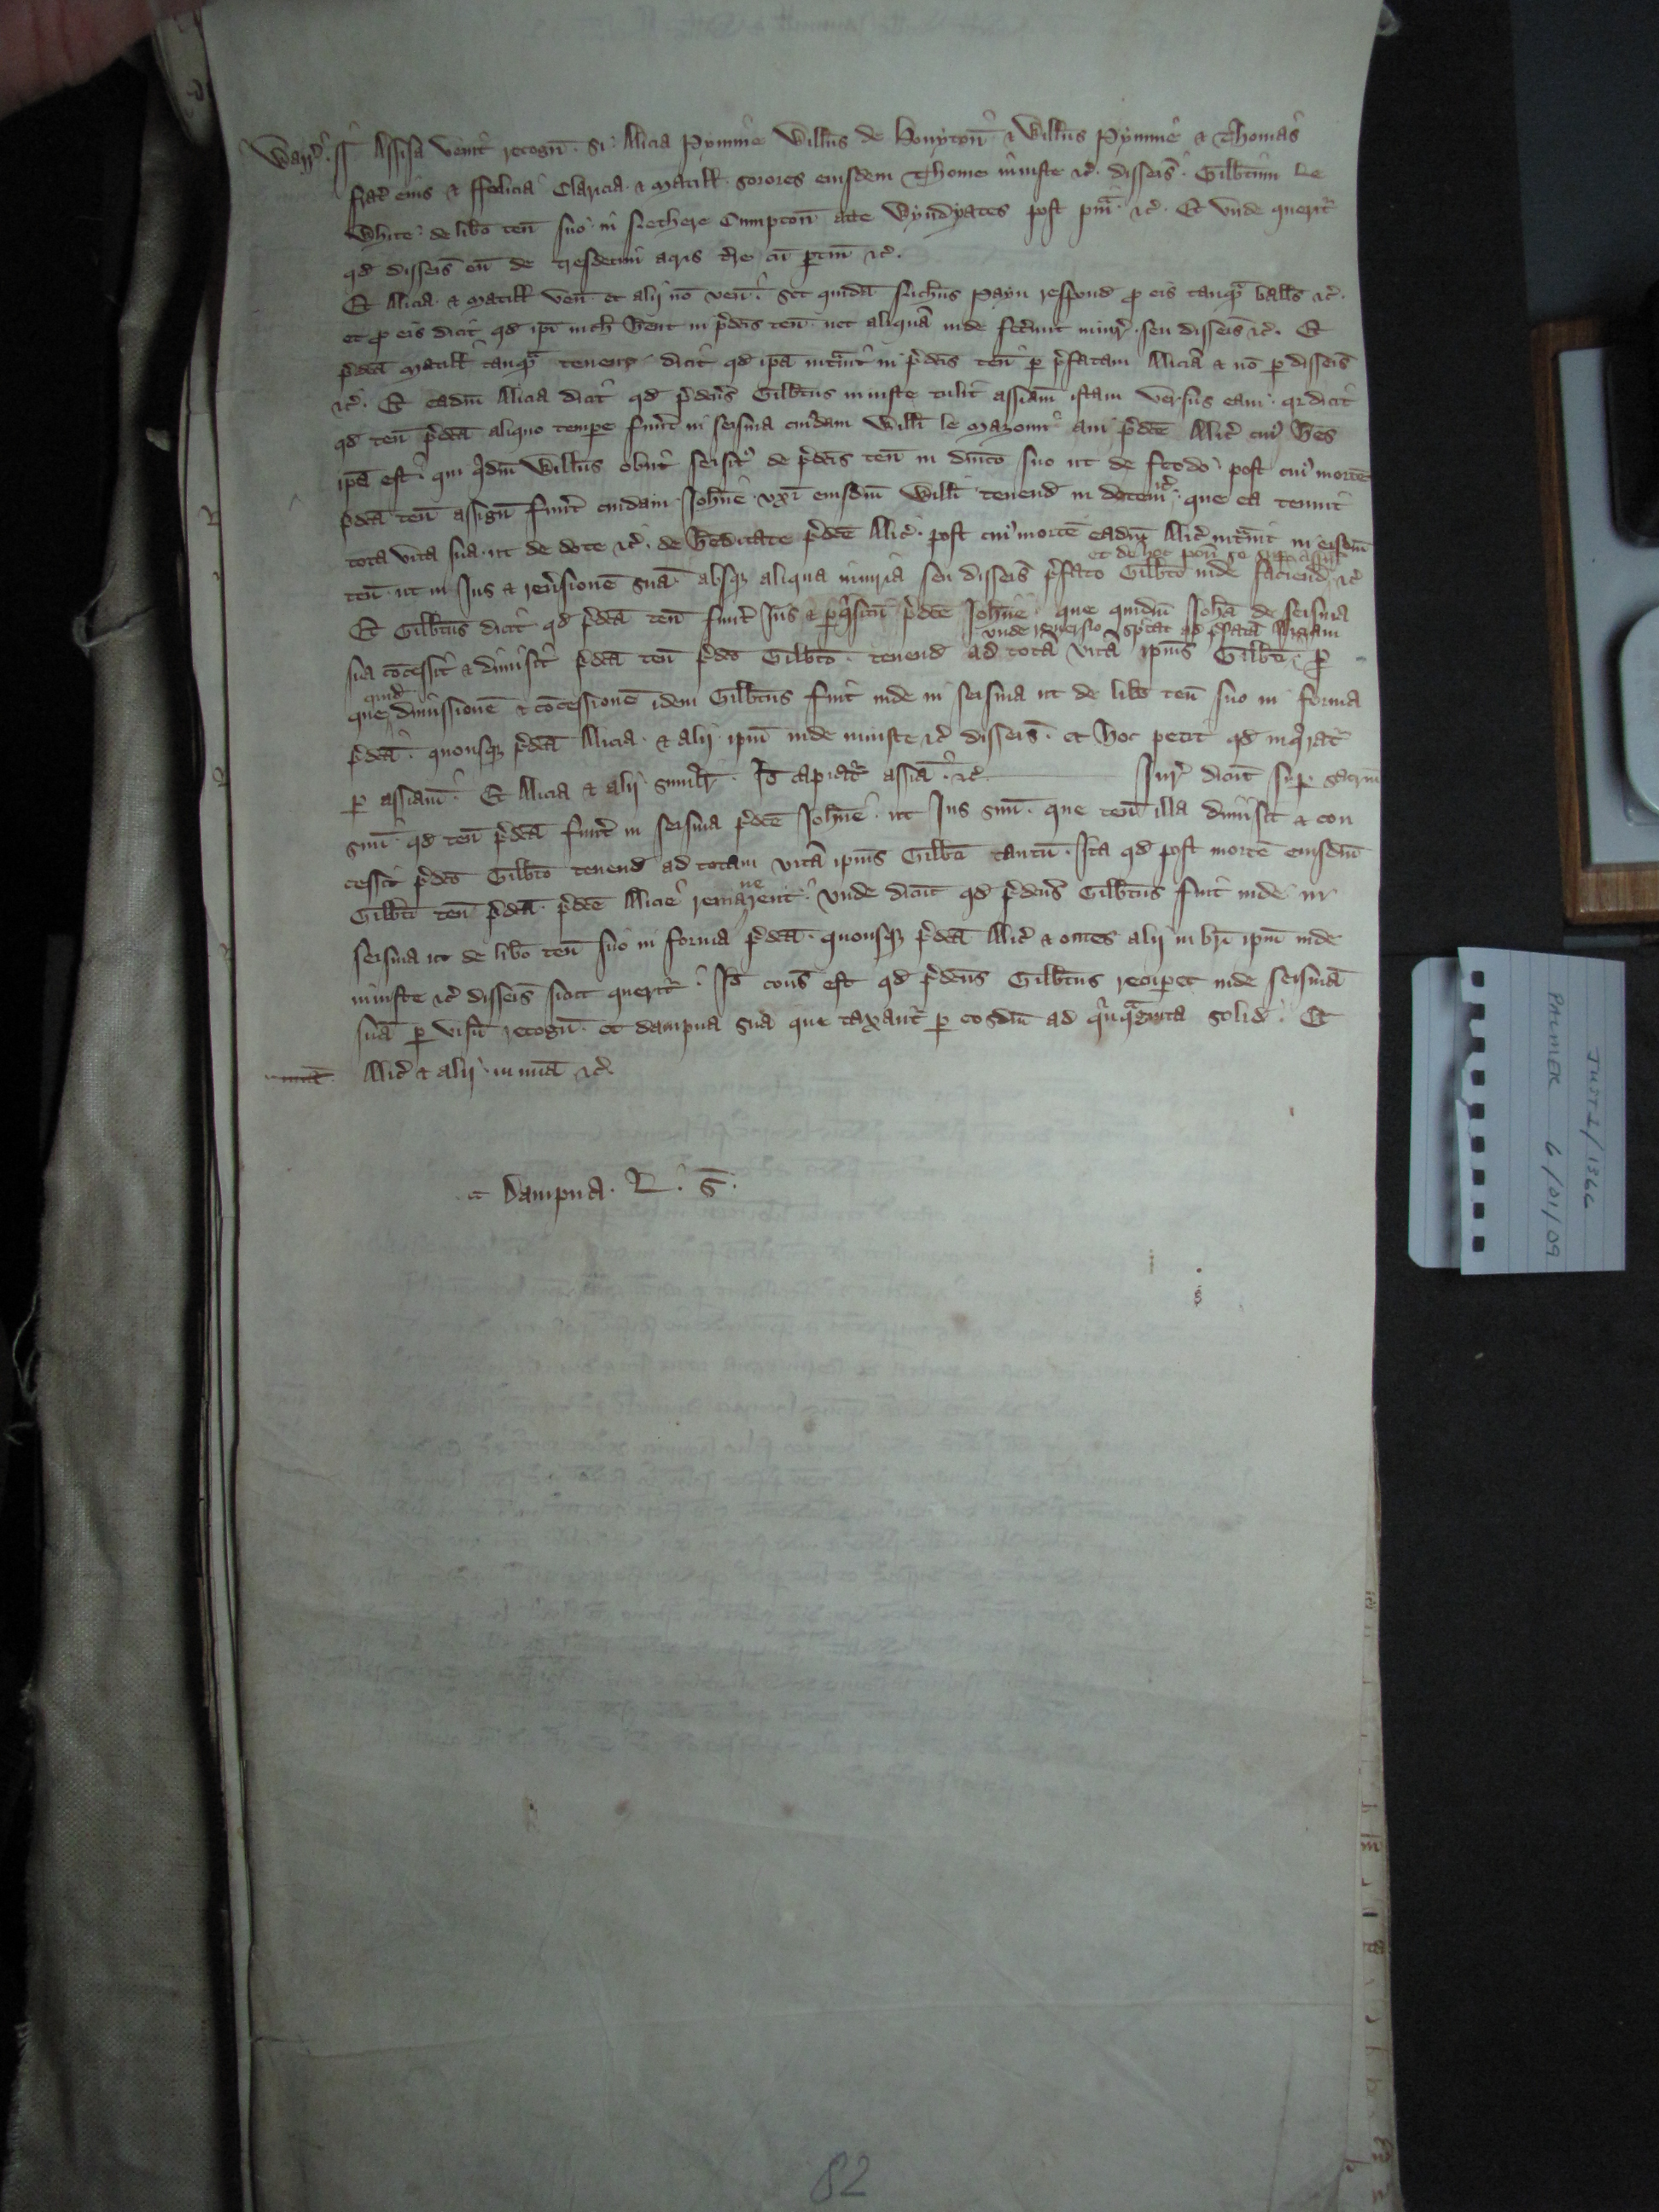 Warr̃. ss Assisa venit recogn̄. si Alicia Pymme Willus de Honyton̄ & Willus Pymme & Thomas
frat̃ eius & ffelicia Claricia & Matill sorores eiusdem Thome iniuste &c̃. disseis̃. Gilbtum le
White de libo ten̄ suo in Nethere Cumpton̄ atte Wyndyates post pm̃. &c̃. Et vnde querit̃
qd disseis̃ eū de tresdecim acris t̃re cū ptin̄ &c̃.
Et Alicia & Matill ven̄. et alij nō ven̄. Set quidā Payn respond p eis tanqᵃ̄ balls &c̃.
et p eis dicit qd ipi nich hent in p̃dcis ten̄. nec aliquā inde fecerunt iniur̃. seu disseis̃ &c̃. Et
p̃dcā Matill tanqᵃ̄ tenens dicit qd ipā int̃uit in p̃dcis ten̄ p p̃fatam Aliciā & nō p disseis̃
&c̃. Et eadm̄ Alicia dicit qd p̃dcūs Gilbtus iniuste tulit assiam̄ istam versus eam. qr dicit
qd ten̄ p̃dcā aliquo tempe fuer̃t in seisina cuiusdam Willi le aui p̃dcē Alic̃ cuiꝰ hes
ipā est. qui qⁱdm̄ Willus obijt seisitꝰ de p̃dcis ten̄ in dnico suo ut de feodo post cuiꝰ mortē
p̃dcā ten̄ assign̄ fuer̃t cuidam Johne vxi eiusdm̄ Willi tenend in dotem &c̃. que ea tenuit
tota vita sua ut de dote &c̃. de heditate p̃dcē Alic̃. post cuiꝰ mortē eadm̄ Alic̃ int̃uit in eisdm̄
ten̄. ut in Jus & reusionē suā. absqꝫ aliqua iniuria seu disseis̃ p̃fato Gilbto inde faciend &c̃
et de hoc pon̄ se sup assam
Et Gilbtus dicit qd p̃dcā ten̄ fuer̃t Jus & pqⁱsitū p̃dcē Johne. que quidm̄ Joha de seisina
sua cōcessit & dimisit p̃dcā ten̄ p̃dco Gilbto. tenend ad totā vitā ipius Gilbti. p
vnde reuersio spectat ad p̃fatā Aliciam
que quid dimissionē & cōcessionē idem Gilbtus fuit inde in seisina ut de libo ten̄ suo in forma
p̃dcā. quousqꝫ p̃dcā Alicia & alij ipm̄ inde iniuste &c̃ disseis̃. et hoc petit qd inqⁱrat̃
p assiam̄. Et Alicia & alij similir̃. Jo capiat̃ assiā. &c̃. Jur̃ dicūt sup sacrm̄
suū qd ten̄ p̃dcā fuer̃t in seisina p̃dcē Johne ut Jus suū. que ten̄ illa dimisit & con
cessit p̃dco Gilbto tenend ad totam vitā ipius Gilbti tantū. Ita qd post mortē eiusdm̄
Gilbti ten̄ p̃dcā p̃dcē Alicie remanerent. vnde dicūt qd p̃dcūs Gilbtus fuit inde in
seisina ut de libo ten̄ suo in forma p̃dcā. quousqꝫ p̃dcā Alic̃ & omes alij in bri ipm̄ inde
iniuste &c̃ disseis̃ sicut querit̃. Jo cons̃ est qd p̃dcūs Gilbtus recupet inde seisinā
suā p visū recogn̄. et dampna sua que taxant̃ p eosdm̄ ad qⁱnqᵃginta solid. Et
mia Alic̃ & alij in mia &c̃.
Dampna. L. s̃.
82
JUST 1/1366
PALMER 6/01/09